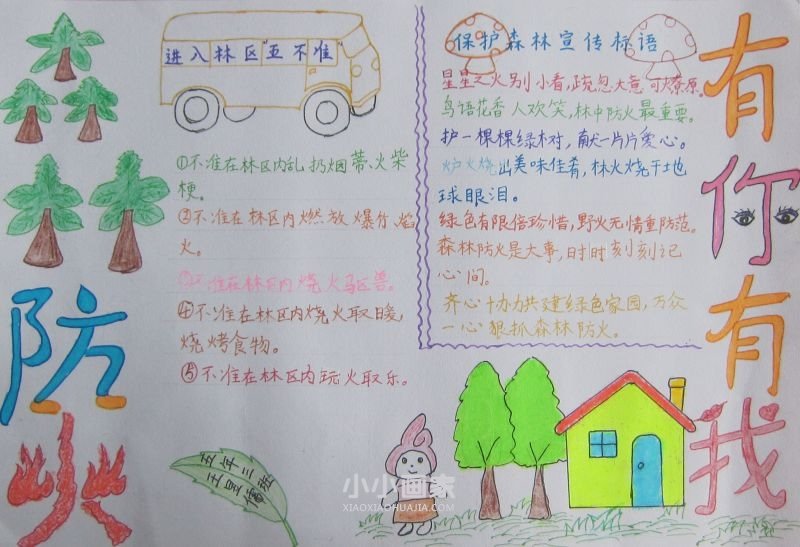 防火
有你有我
进入林区"五不准"
①不准在林区内乱扔烟蒂、火柴
梗。
②不准在林区内燃放爆竹、焰
火。
③不准在林区内烧火驱兽。
④不准在林区内烧火取暖,
烧烤食物。
⑤不准在林区内玩火取乐。
保护森林宣传标语
星星之火别小看,疏忽大意可燎原。
鸟语花香人欢笑,林中防火最重要。
护一棵棵绿树,献一片片爱心。
炉火烧出美味佳肴,林火烧干地
球眼泪。
绿色有限倍珍惜,野火无情重防范。
森林防火是大事,时时刻刻记
心间。
齐心协力共建绿色家园,万众
一心狠抓森林防火。
五年三班
小小画家
XIAOXIAOHUAJIA.COM